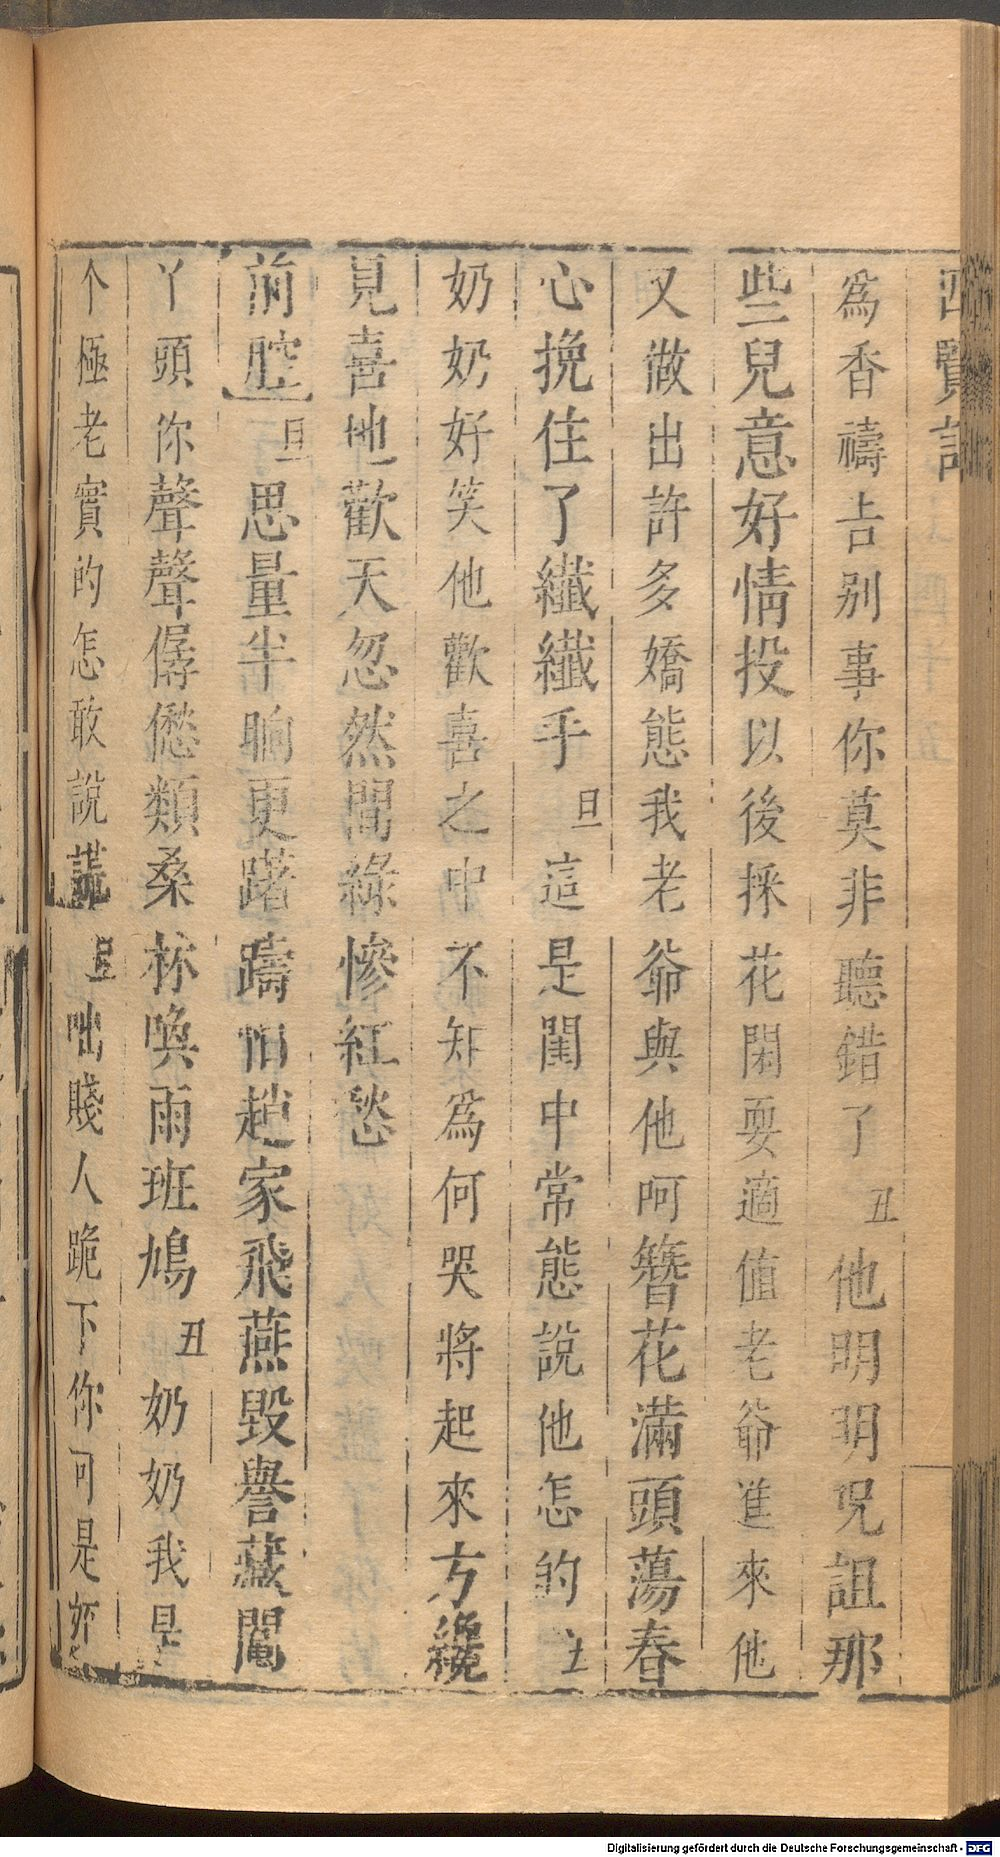 四賢記
為香禱告别事你莫非聽錯了丑他明明呪詛那
些兒意好情投以後採花閑耍適值老爺進來他
又做出許多嬌態我老爺與他呵簪花滿頭蕩春
心挽住了纖纖手旦這是閨中常態說他怎的丑
奶奶好笑他歡喜之中不知為何哭將起來方纔
見喜地歡天忽然間綠慘紅愁
前腔旦思量半晌更躇躊怕趙家飛燕毀譽藏鬮
丫頭你聲聲僝僽類桑林喚雨班鳩丑奶奶我是
个極老實的怎敢說謊旦咄賤人跪下你可是奸
Digitalisierung gefördert durch die Deutsche Forschungsgemeinschaft - DFG